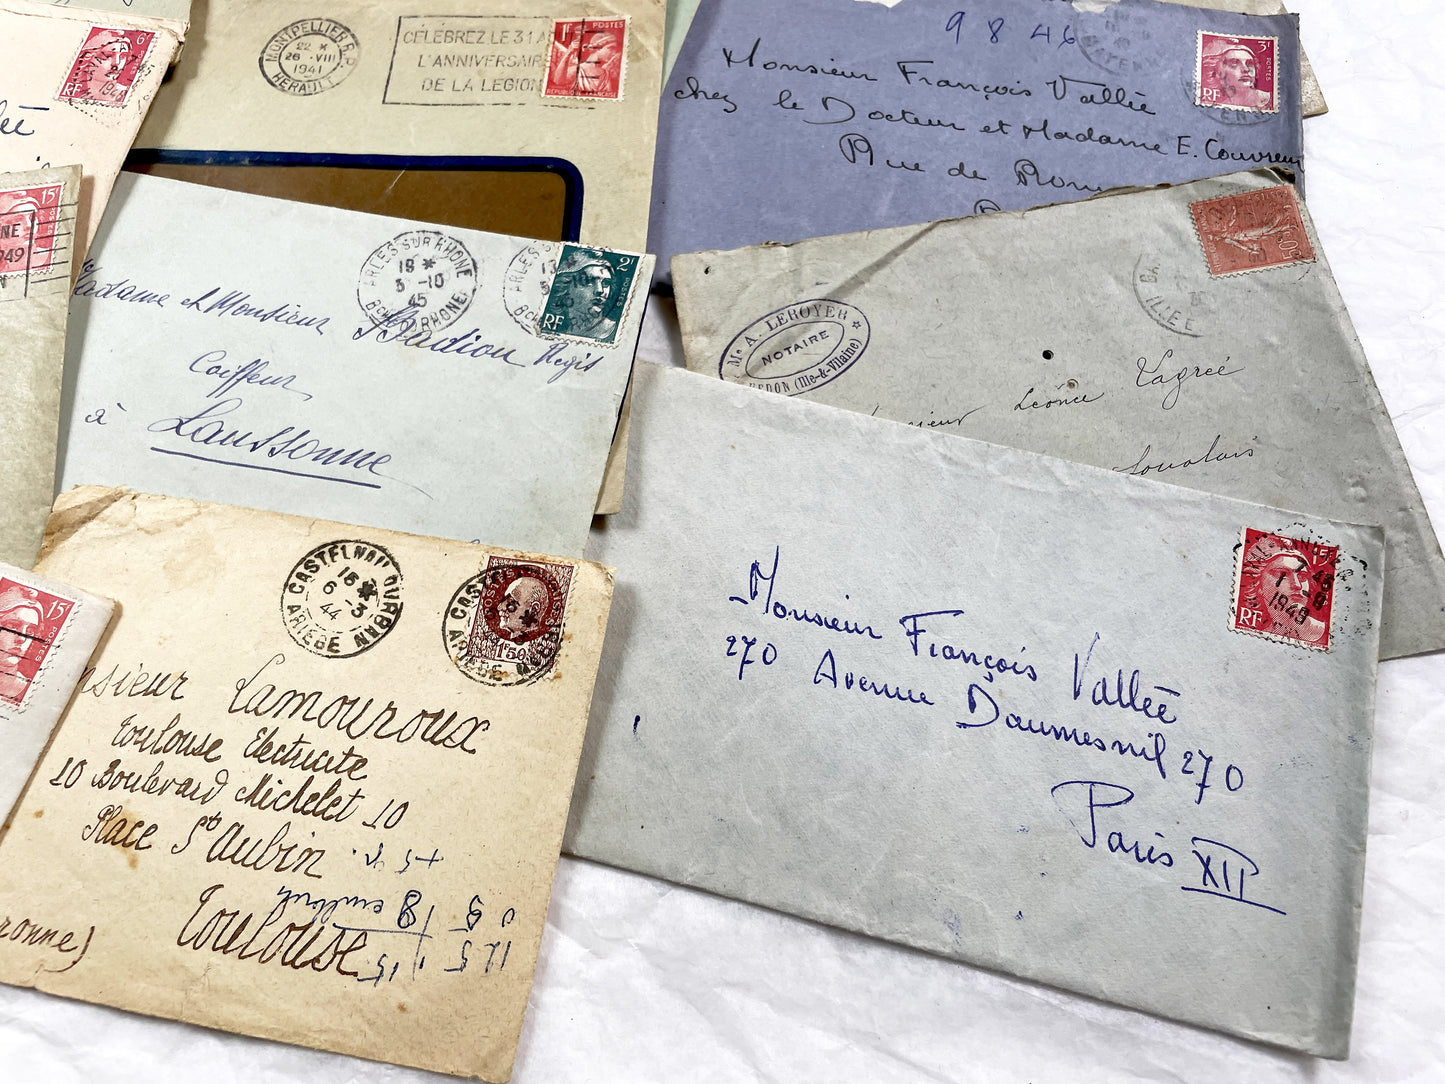 6F
RF
1948
MONTPELLIER R.P.
22 *
26 -VIII
1941
HERAULT
CÉLÉBREZ LE 31 AOUT
L'ANNIVERSAIRE
DE LA LEGION
1F
POSTES
REPUBLIQUE FRANÇAISE
9846
Monsieur François Vallée
chez le Docteur et Madame E. Couvreur
Rue de Rome
3F
POSTES
RF
15F
1949
ARLES SUR RHONE
19 *
3 -10
45
Bch DU RHONE
ARLES
2F
POSTES
RF
Madame et Monsieur Badiou Regis
Coiffeur
à Laussonne
Me A. LEROYER
NOTAIRE
REDON (Ille-&-Vilaine)
ILLE E
Léonce Lagreé
CASTELNAU DURBAN
16 *
6 -3
44
ARIEGE
1F50
Lamouroux
Toulouse Electricite
10 Boulevard Michelet 10
Place St Aubin
Toulouse
ronne)
15F
POSTES
15F
RF
1949
Monsieur François Vallée
270 Avenue Daumesnil 270
Paris XII